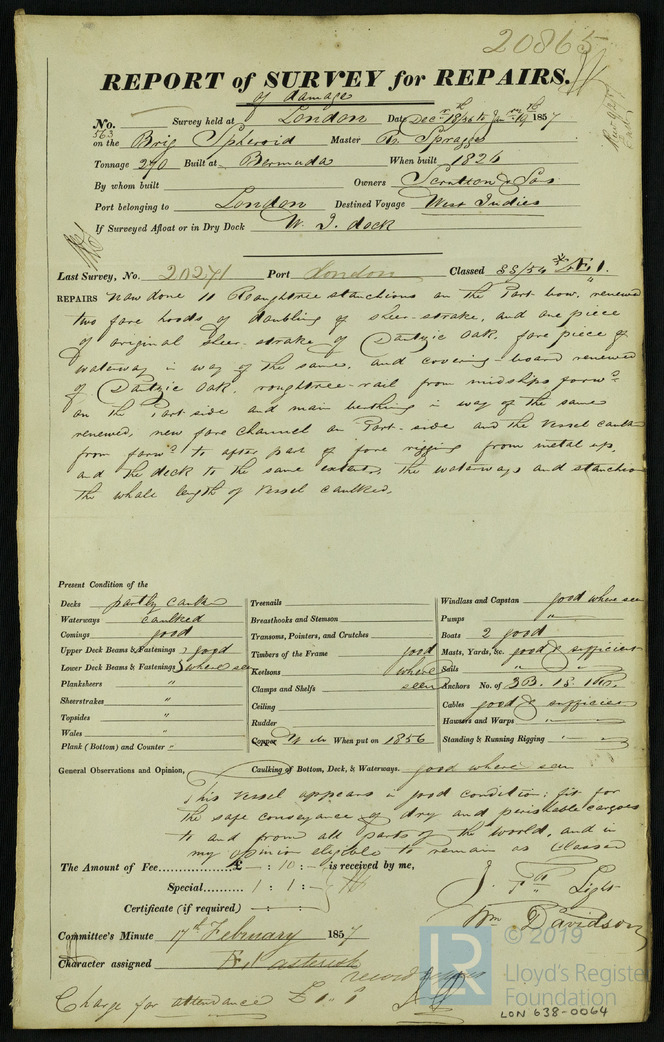 20865
REPORT of SURVEY for REPAIRS.
of damage
No. 563 Survey held at London Date Decr 18/56 to 1857
on the Brig Spheroid Master Spragge
Tonnage 270 Built at Bermuda When built 1826
By whom built Owners Scrutton & Sons
Port belonging to London Destined Voyage West Indies
If Surveyed Afloat or in Dry Dock W. I. dock
Last Survey, No. 20271 Port London Classed 55/54 * Æ 1.
REPAIRS Now done 11 Roughtree stanchions on the Port bow, renewed
two fore hoods of doubling of sheer-strake, and one piece
of original sheer-strake of Dantzic Oak, fore piece of
waterway in way of the same, and covering-board renewed
of Dantzic Oak, roughtree-rail from midships forwd
on the Port side and main berthing in way of the same
renewed, new fore channel on Port-side and the Vessel caulkd
from forwd to after part of fore rigging from metal up,
and the deck to the same extent, the waterways and stanchions
the whole length of Vessel caulked.
Present Condition of the
Decks partly caulkd
Waterways caulked
Comings good
Upper Deck Beams & Fastenings good
Lower Deck Beams & Fastenings where seen
Planksheers "
Sheerstrakes "
Topsides "
Wales "
Plank (Bottom) and Counter "
Treenails
Breasthooks and Stemson
Transoms, Pointers, and Crutches
Timbers of the Frame good
Keelsons where
Clamps and Shelfs seen
Ceiling
Rudder
Copper Y M When put on 1856
Caulking of Bottom, Deck, & Waterways. good where seen
Windlass and Capstan good where seen
Pumps "
Boats 2 good
Masts, Yards, &c. good & sufficient
Sails " "
Anchors No. of 3 B. 1 S. 1 K.
Cables good & sufficient
Hawsers and Warps " "
Standing & Running Rigging " "
General Observations and Opinion,
This Vessel appears in good condition; fit for
the safe conveyance of dry and perishable cargoes
to and from all parts of the world, and in
my opinion eligible to remain as Classed
The Amount of Fee £ – : 10 : – is received by me,
Special 1 : 1 : –
Certificate (if required) – : –
J. Light
Wm Davidson
Committee's Minute 17th February 1857
Character assigned Æ 1 asterisk
Charge for attendance £1..1
© 2019
LR
Lloyd's Register
Foundation
LON 638-0064